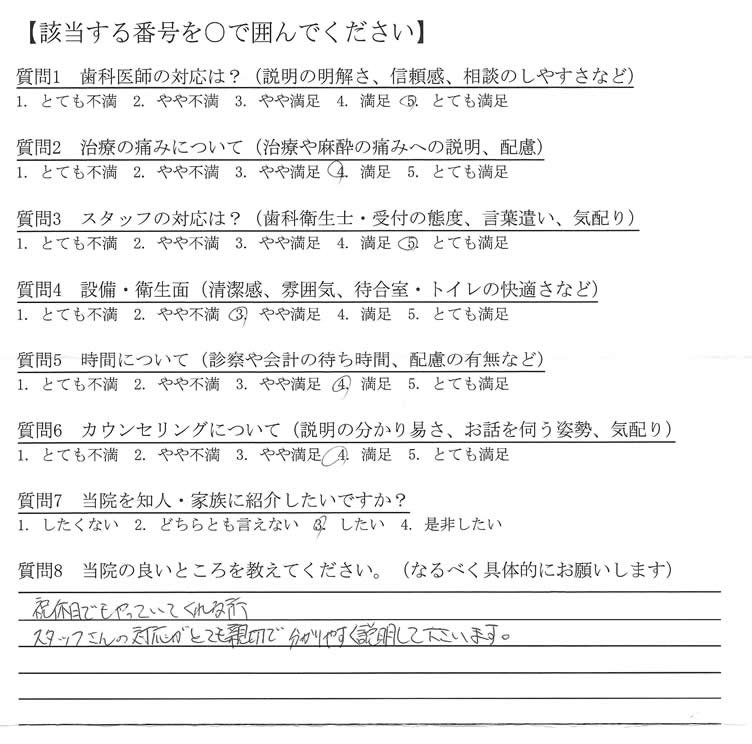 【該当する番号を〇で囲んでください】
質問1　歯科医師の対応は？（説明の明解さ、信頼感、相談のしやすさなど）
1. とても不満　2. やや不満　3. やや満足　4. 満足　5. とても満足
質問2　治療の痛みについて（治療や麻酔の痛みへの説明、配慮）
1. とても不満　2. やや不満　3. やや満足　4. 満足　5. とても満足
質問3　スタッフの対応は？（歯科衛生士・受付の態度、言葉遣い、気配り）
1. とても不満　2. やや不満　3. やや満足　4. 満足　5. とても満足
質問4　設備・衛生面（清潔感、雰囲気、待合室・トイレの快適さなど）
1. とても不満　2. やや不満　3. やや満足　4. 満足　5. とても満足
質問5　時間について（診察や会計の待ち時間、配慮の有無など）
1. とても不満　2. やや不満　3. やや満足　4. 満足　5. とても満足
質問6　カウンセリングについて（説明の分かり易さ、お話を伺う姿勢、気配り）
1. とても不満　2. やや不満　3. やや満足　4. 満足　5. とても満足
質問7　当院を知人・家族に紹介したいですか？
1. したくない　2. どちらとも言えない　3. したい　4. 是非したい
質問8　当院の良いところを教えてください。（なるべく具体的にお願いします）
祝休日でもやっていてくれる所
スタッフさんの対応がとても親切で分かりやすく説明して下さいます。